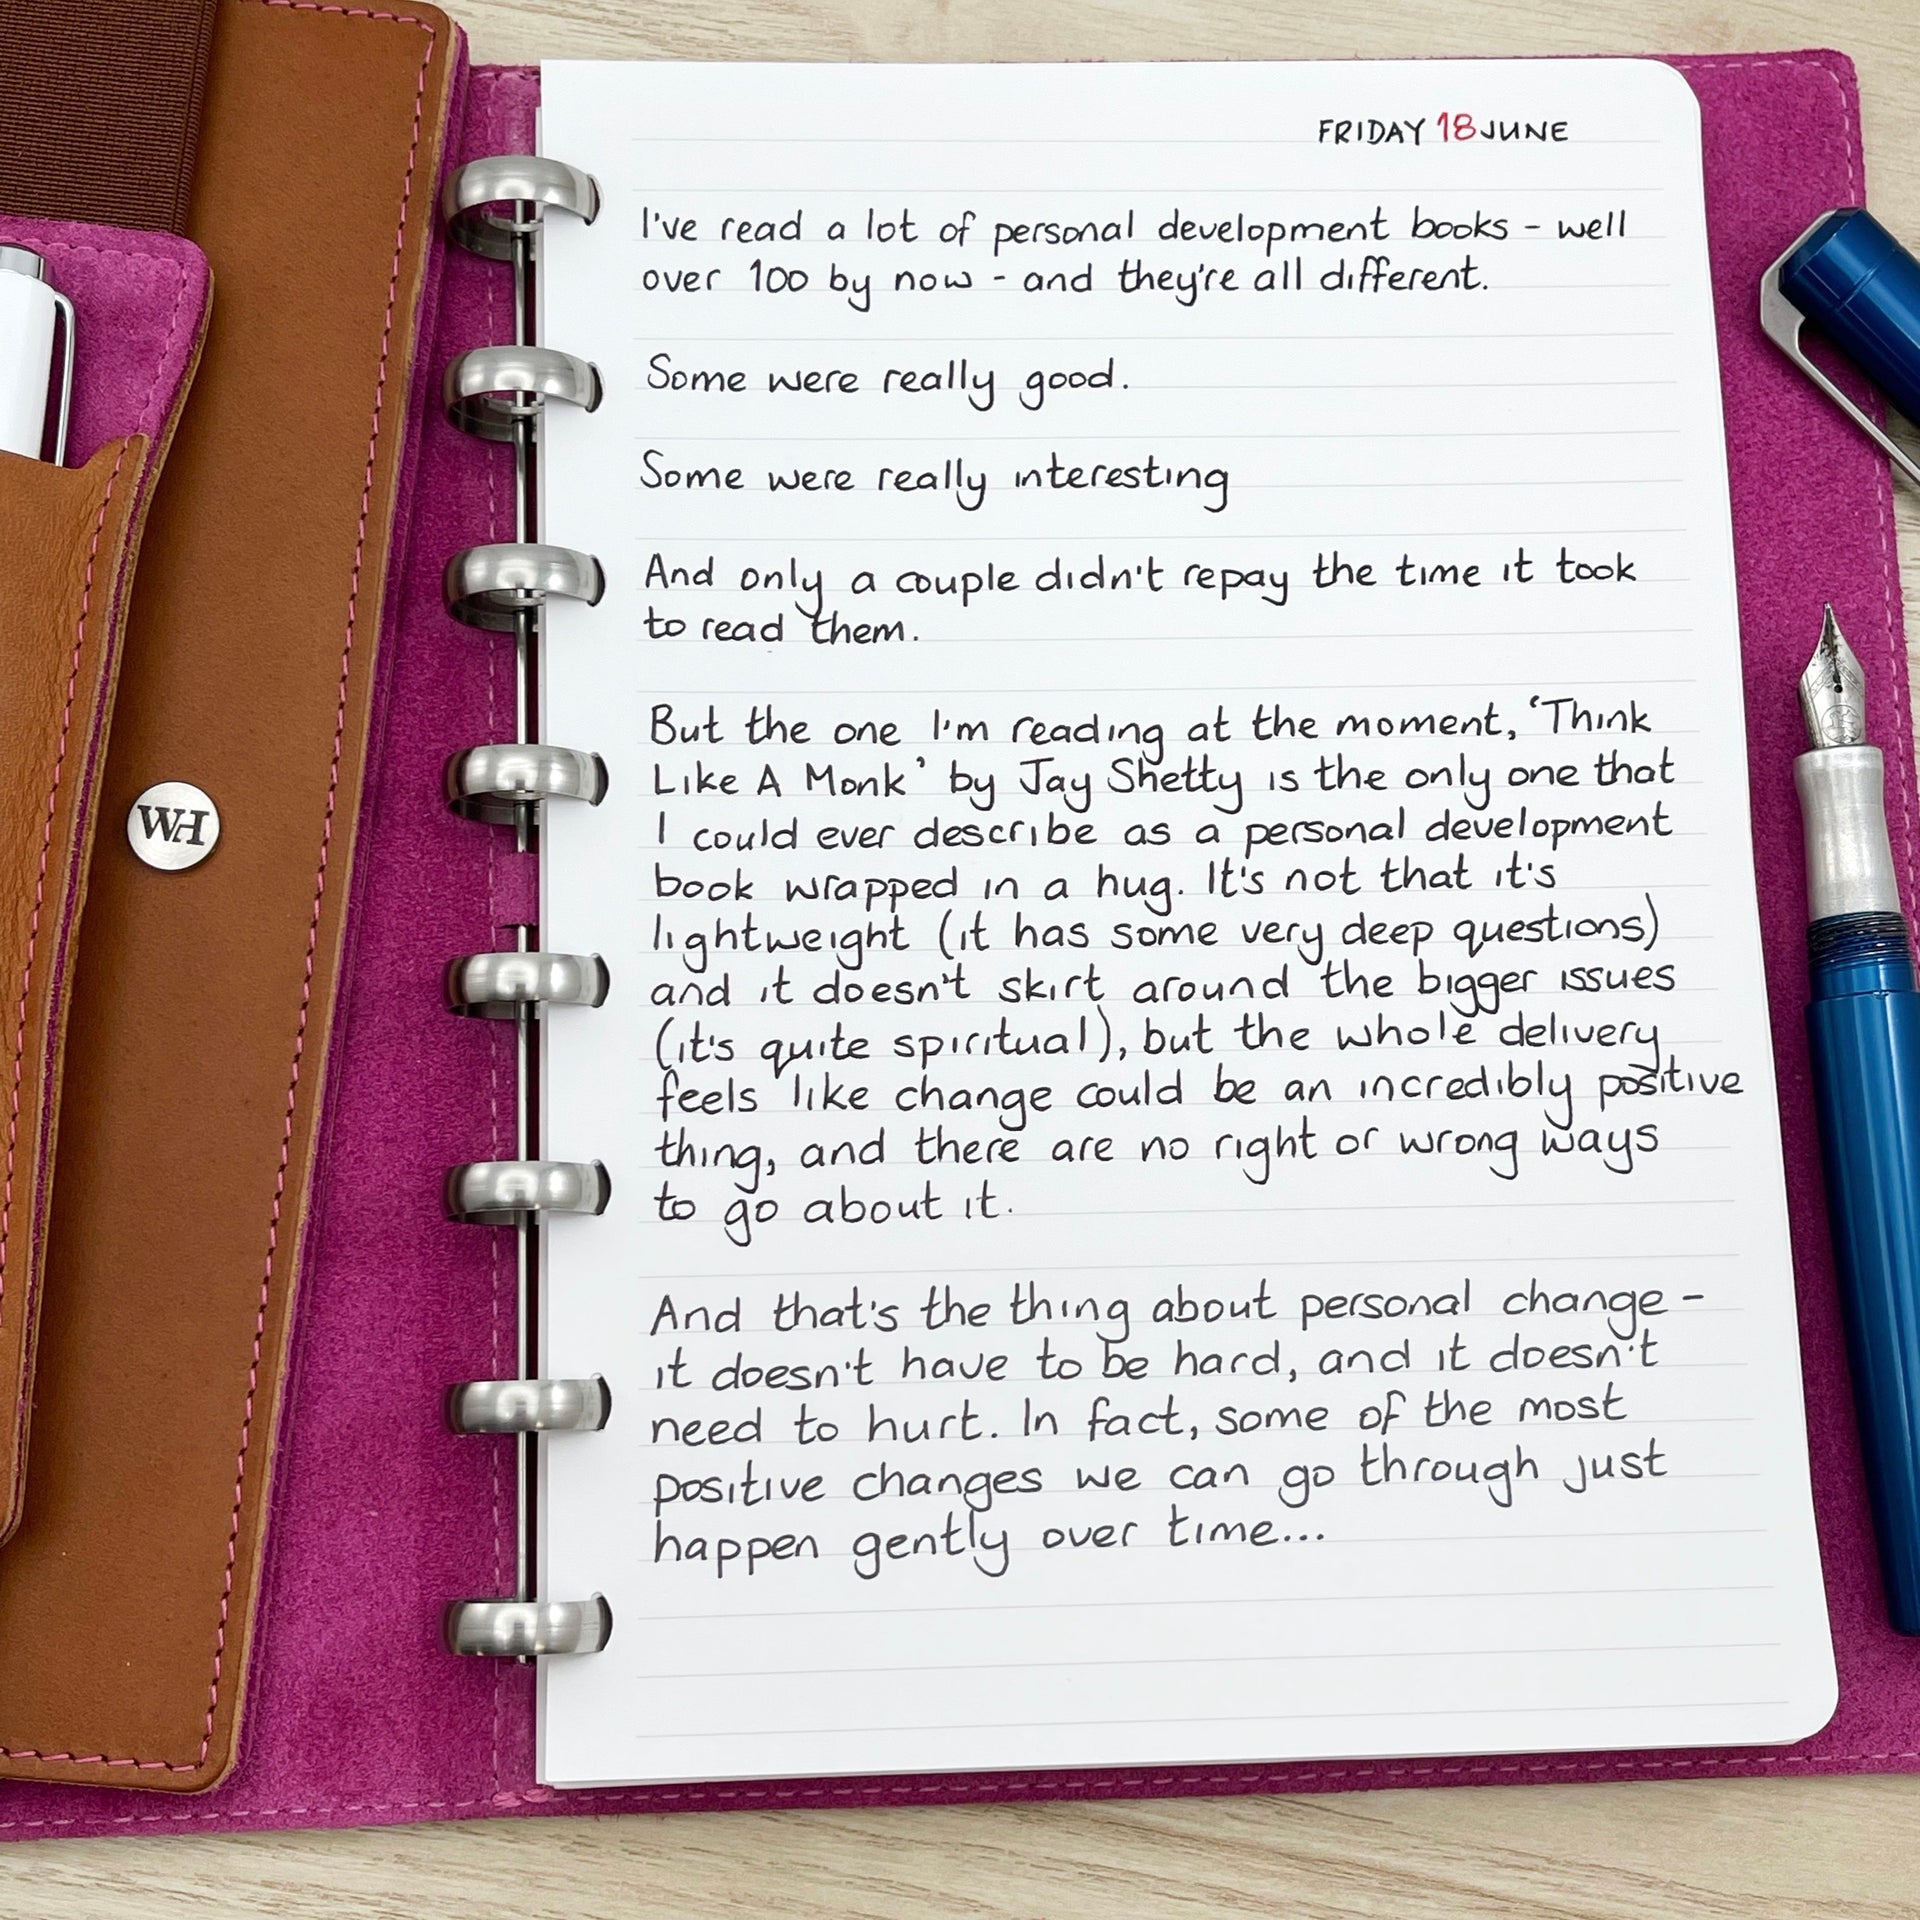 FRIDAY 18 JUNE
I've read a lot of personal development books - well
over 100 by now - and they're all different.
Some were really good.
Some were really interesting
And only a couple didn't repay the time it took
to read them.
But the one I'm reading at the moment, 'Think
Like A Monk' by Jay Shetty is the only one that
I could ever describe as a personal development
book wrapped in a hug. It's not that it's
lightweight (it has some very deep questions)
and it doesn't skirt around the bigger issues
(it's quite spiritual), but the whole delivery
feels like change could be an incredibly positive
thing, and there are no right or wrong ways
to go about it.
And that's the thing about personal change -
it doesn't have to be hard, and it doesn't
need to hurt. In fact, some of the most
positive changes we can go through just
happen gently over time...
WH